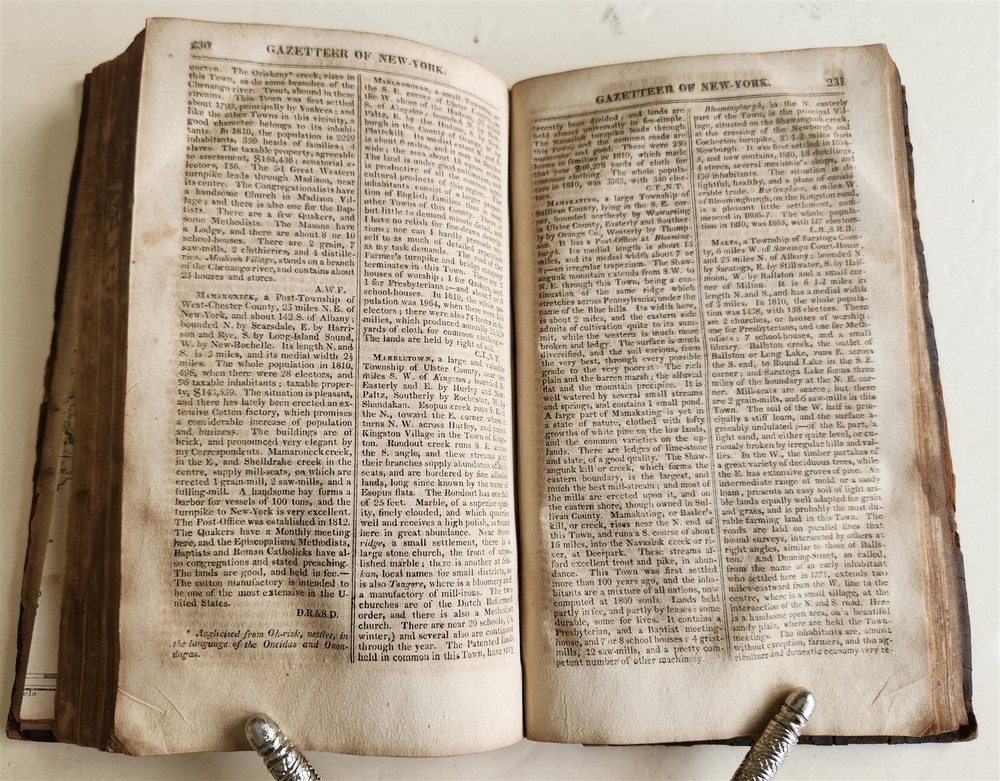 230
GAZETTEER OF NEW-YORK.
uneven. The Oriskany* creek, rises in
this Town, as do some branches of the
Chenango river. Trout, abound in these
streams. This Town was first settled
about 1793, principally by Yankees; and
like the other Towns in this vicinity, a
good character belongs to its inhabi-
tants. In 1810, the population is
inhabitants, 359 heads of families,
slaves. The taxable property, agreeable
to assessment, $164,436; senatorial e-
lectors, 156. The 3d Great Western
turnpike leads through Madison, near
its centre. The Congregationalists have
a handsome Church in Madison Vil-
lage; and there is also one for the Bap-
tists. There are a few Quakers, and
some Methodists. The Masons have
a Lodge, and there are about 8 or 10
school-houses. There are 2 grain, 7
saw-mills, 2 clothieries, and 4 distille-
ries. Madison Village, stands on a branch
of the Chenango river, and contains about
25 houses and stores.
A.W.F.
MAMARONECK, a Post-Township of
West-Chester County, 23 miles N.E. of
New-York, and about 142 S. of Albany:
bounded N. by Scarsdale, E. by Harri-
son and Rye, S. by Long-Island Sound,
W. by New-Rochelle. Its length N. and
S. is 3 miles, and its medial width 2½
miles. The whole population in 1810,
496, when there were 28 electors, and
96 taxable inhabitants; taxable proper-
ty, $143,339. The situation is pleasant,
and there has lately been erected an ex-
tensive Cotton factory, which promises
a considerable increase of population
and business. The buildings are of
brick, and pronounced very elegant by
my Correspondents. Mamaroneck creek,
in the E., and Shelldrake creek in the
centre, supply mill-seats, on which are
erected 1 grain-mill, 2 saw-mills, and a
fulling-mill. A handsome bay forms a
harbor for vessels of 100 tons, and the
turnpike to New-York is very excellent.
The Post-Office was established in 1812.
The Quakers have a Monthly meeting
here, and the Episcopalians, Methodists,
Baptists and Roman Catholicks have al-
so congregations and stated preaching.
The lands are good, and held in fee.—
The cotton manufactory is intended to
be one of the most extensive in the U-
nited States.
D.R.&S.D.
* Anglicised from Oh-risk, nettles, in
the language of the Oneidas and Onon-
dagas.
MARLBOROUGH, a small Township
the S. E. corner of Ulster County, on
the W. shore of the Hudson,
S. of Kingston; bounded
Paltz, E. by the Hudson, S. by
burgh in the County of Orange, W. by
Plattekill. Its medial length
is about 6 miles, and its medial
wide; the area about 18
The land is under
is productive of all the common
cultural products of this region.
inhabitants consist of
tion of English families than most
other Towns of this County.
but little to demand minute
I have no relish for fine-drawn
sions; nor can I hardly persuade my-
self to as much of detail, as
my task demands. The
Farmer's turnpike and bridge road
terminates in this Town. There are
houses of worship; 1 for Quakers
1 for Presbyterians;—and about 7 or 8
school-houses. In 1810, the whole po-
pulation was 1964, when there were
electors; there were also 74 looms in fa-
milies, which produced annually
yards of cloth for common clothing.
The lands are held by right of soil.
C.T.,N.T.
MARBLETOWN, a large and valuable
Township of Ulster County,
miles S. W. of Kingston; bounded N.
Easterly and E. by Hurley and New
Paltz, Southerly by Rochester, W. by
Shandakan. Esopus creek runs S. E.
the N., toward the E. corner, where it
turns N. W. across Hurley, and
Kingston Village in the Town of Kings-
ton. Rondout creek runs S. E. across
the S. angle, and these streams
their branches supply abundance of mill-
seats, and are bordered by fine alluvial
lands, long since known by the name of
Esopus flats. The Rondout has one fall
of 25 feet. Marble, of a superior qua-
lity, finely clouded, and which quarries
well and receives a high polish, is found
here in great abundance. Near Stone
ridges, a small settlement, there is a
large stone church, the front of unpo-
lished marble; there is another at
kan, local names for small districts, as
is also Tuagore, where is a bloomery and
a manufactory of mill-irons. The two
churches are of the Dutch Reformed
order, and there is also a Methodist
church. There are near 20 schools, (in
winter,) and several also are continued
through the year. The Patented lands
held in common in this Town, have very
GAZETTEER OF NEW-YORK.
231
recently been divided; and lands are
held almost universally in fee-simple.
The Neversink turnpike leads through
this Town, and the common roads are
numerous and good. There were 230
looms in families in 1810, which made
that year 46,275 yards of cloth for
common clothing. The whole popula-
tion in 1810, was 3363, with 340 elec-
C.T.,N.T.
MAMAKATING, a large Township of
Sullivan County, lying in the S. E. cor-
ner, bounded northerly by Wawarsing
in Ulster County, Easterly and Souther-
ly by Orange Co., Westerly by Thomp-
son. It has a Post-Office at Blooming-
burgh. Its medial length is about 15
miles, and its medial width about 7 or
8;—an irregular trapezium. The Shaw-
angunk mountain extends from S.W. to
N. E. through this Town, being a con-
tinuation of the same ridge which
stretches across Pennsylvania, under the
name of the Blue hills. Its width here,
is about 2 miles, and the eastern side
admits of cultivation quite to its sum-
mit, while the western is much more
broken and ledgy. The surface is much
diversified, and the soil various, from
the very best, through every possible
grade to the very poorest: The rich
plain and the barren marsh; the alluvial
flat and the mountain precipice. It is
well watered by several small streams
and springs, and contains 1 small pond.
A large part of Mamakating is yet in
a state of nature, clothed with lofty
growths of white pine on the low lands,
and the common varieties on the up-
lands. There are ledges of lime-stone
and slate, of a good quality. The Shaw-
angunk kill or creek, which forms the
eastern boundary, is the largest, and
much the best mill-stream, and most of
the mills are erected upon it, and on
the eastern shore, though owned in Sul-
livan County. Mamakating, or Basler's
kill, or creek, rises near the N. end of
this Town, and runs a S. course of about
16 miles, into the Navasink creek or ri-
ver, at Deerpark. These streams af-
ford excellent trout and pike, in abun-
dance. This Town was first settled
more than 100 years ago, and the inha-
bitants are a mixture of all nations, now
computed at 1800 souls. Lands held
partly in fee, and partly by leases: some
durable, some for lives. It contains a
Presbyterian, and a Baptist meeting-
house, and 7 or 8 school houses: 4 grist-
mills, 12 saw-mills, and a pretty com-
petent number of other machinery.
Bloomingburgh, in the N. easterly
part of the Town, is the principal Vil-
lage, situated on the Shawangunk creek,
at the crossing of the Newburgh and
Cochecton turnpike, 23 1-2 miles from
Newburgh. It was first settled in
and now contains, 1810, 18 dwellings,
4 stores, several mechanic's shops, and
130 inhabitants. The situation is de-
lightful, healthy, and a place of consid-
erable trade. Burlingham, 4 miles W.
of Bloomingburgh, on the Kingston road,
is a pleasant little settlement, com-
menced in 1806-7. The whole popula-
tion in 1810, was 1865, with 147 electors.
L.B.,S.R.B.
MALTA, a Township of Saratoga Coun-
ty, 6 miles W. of Saratoga Court-House,
and 25 miles N. of Albany; bounded N.
by Saratoga, E. by Stillwater, S. by Half-
moon, W. by Ballston and a small cor-
ner of Milton. It is 6 1-2 miles in
length N. and S., and has a medial width
of 5 miles. In 1810, the whole popula-
tion was 1438, with 158 electors. There
are 2 churches, or houses of worship:
one for Presbyterians, and one for Meth-
odists; 7 school-houses, and a small
library. Ballston creek, the outlet of
Ballston or Long Lake, runs E. across
the S. end, to Round Lake in the S. E.
corner; and Saratoga Lake forms three
miles of the boundary at the N. E. cor-
ner. Mill-seats are scarce; but there
are 2 grain-mills, and 6 saw-mills in this
Town. The soil of the W. half is prin-
cipally a stiff loam, and the surface a-
greeably undulated;—of the E. part, a
light sand, and either quite level, or cu-
riously broken by irregular hills and val-
lies. In the W., the timber partakes of
a great variety of deciduous trees, while
the E. has extensive groves of pine. An
intermediate range of mold or a sandy
loam, presents an easy soil of light ara-
ble lands equally well adapted for grain
and grass, and is probably the most du-
rable farming land in this Town. The
roads are laid on parallel lines that
bound surveys, intersected by others at
right angles, similar to those of Balls-
ton. And Dunning-Street, so called,
from the name of an early inhabitant
who settled here in 1771, extends two
miles eastward from the W. line to the
centre, where is a small village, at the
intersection of the N. and S. road. Here
is a handsome open area, on a beautiful
sandy plain, where are held the Town-
meetings. The inhabitants are, almost
without exception, farmers, and the ag-
riculture and domestic economy very re-